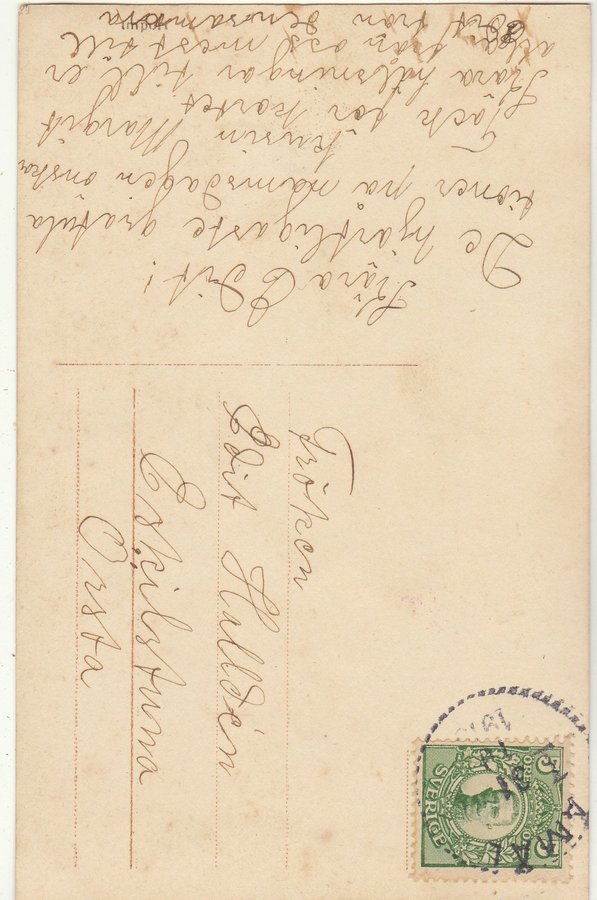 Kära Edit!
De hjärtligaste gratula
tioner på namnsdagen önska
kusin Margit
Tack för kortet
Kära hälsningar till er
alla från oss mest till
Edit från
densamma
Import
Fröken
Edit Halldén
Eskilstuna
Orsta
SVERIGE
5 ÖRE 5
ÅMÅL